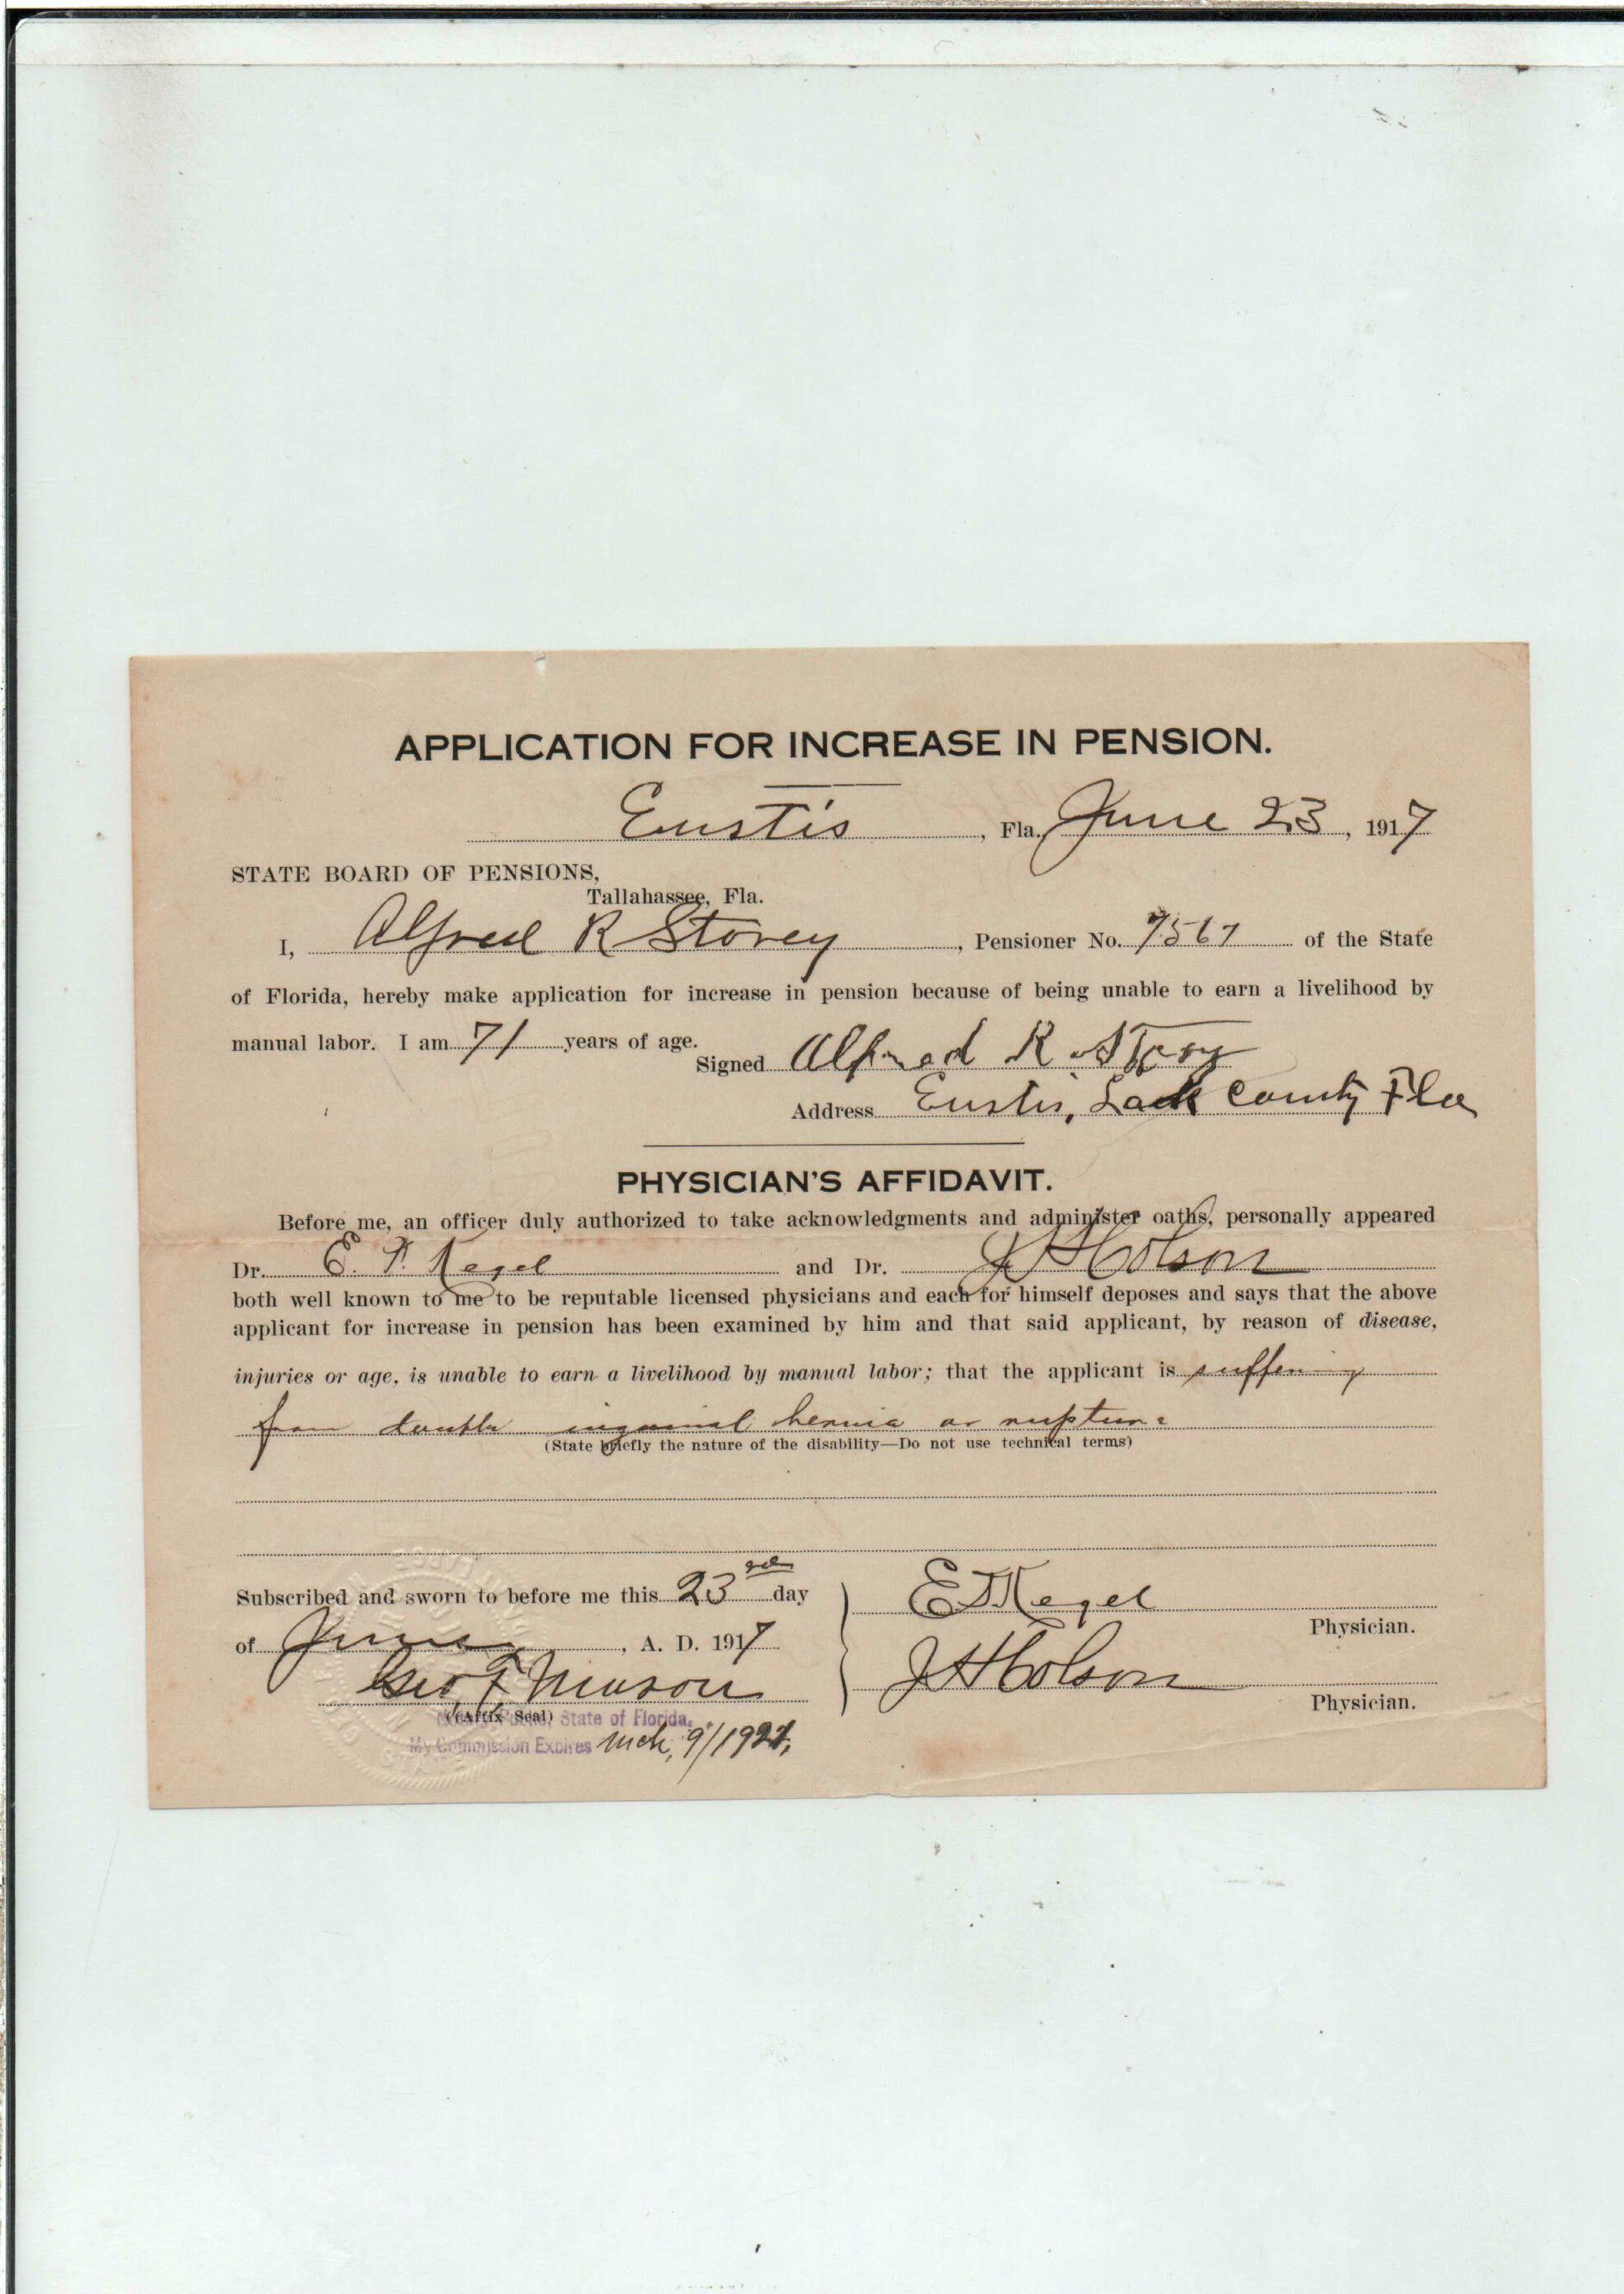 APPLICATION FOR INCREASE IN PENSION.
Eustis, Fla. June 23, 1917
STATE BOARD OF PENSIONS,
Tallahassee, Fla.
I, Alfred R Storey, Pensioner No. 7567 of the State
of Florida, hereby make application for increase in pension because of being unable to earn a livelihood by
manual labor. I am 71 years of age.
Signed Alfred R Story
Address Eustis, Lake County Fla
PHYSICIAN'S AFFIDAVIT.
Before me, an officer duly authorized to take acknowledgments and administer oaths, personally appeared
Dr. E. and Dr. J H Colson
both well known to me to be reputable licensed physicians and each for himself deposes and says that the above
applicant for increase in pension has been examined by him and that said applicant, by reason of disease,
injuries or age, is unable to earn a livelihood by manual labor; that the applicant is suffering
from double inguinal hernia or rupture
(State briefly the nature of the disability—Do not use technical terms)
Subscribed and sworn to before me this 23rd day
of June, A. D. 1917
E
Physician.
Geo. F. 
J H Colson
Physician.
(Affix Seal)
Notary Public, State of Florida.
My Commission Expires Mch, 9/1921,